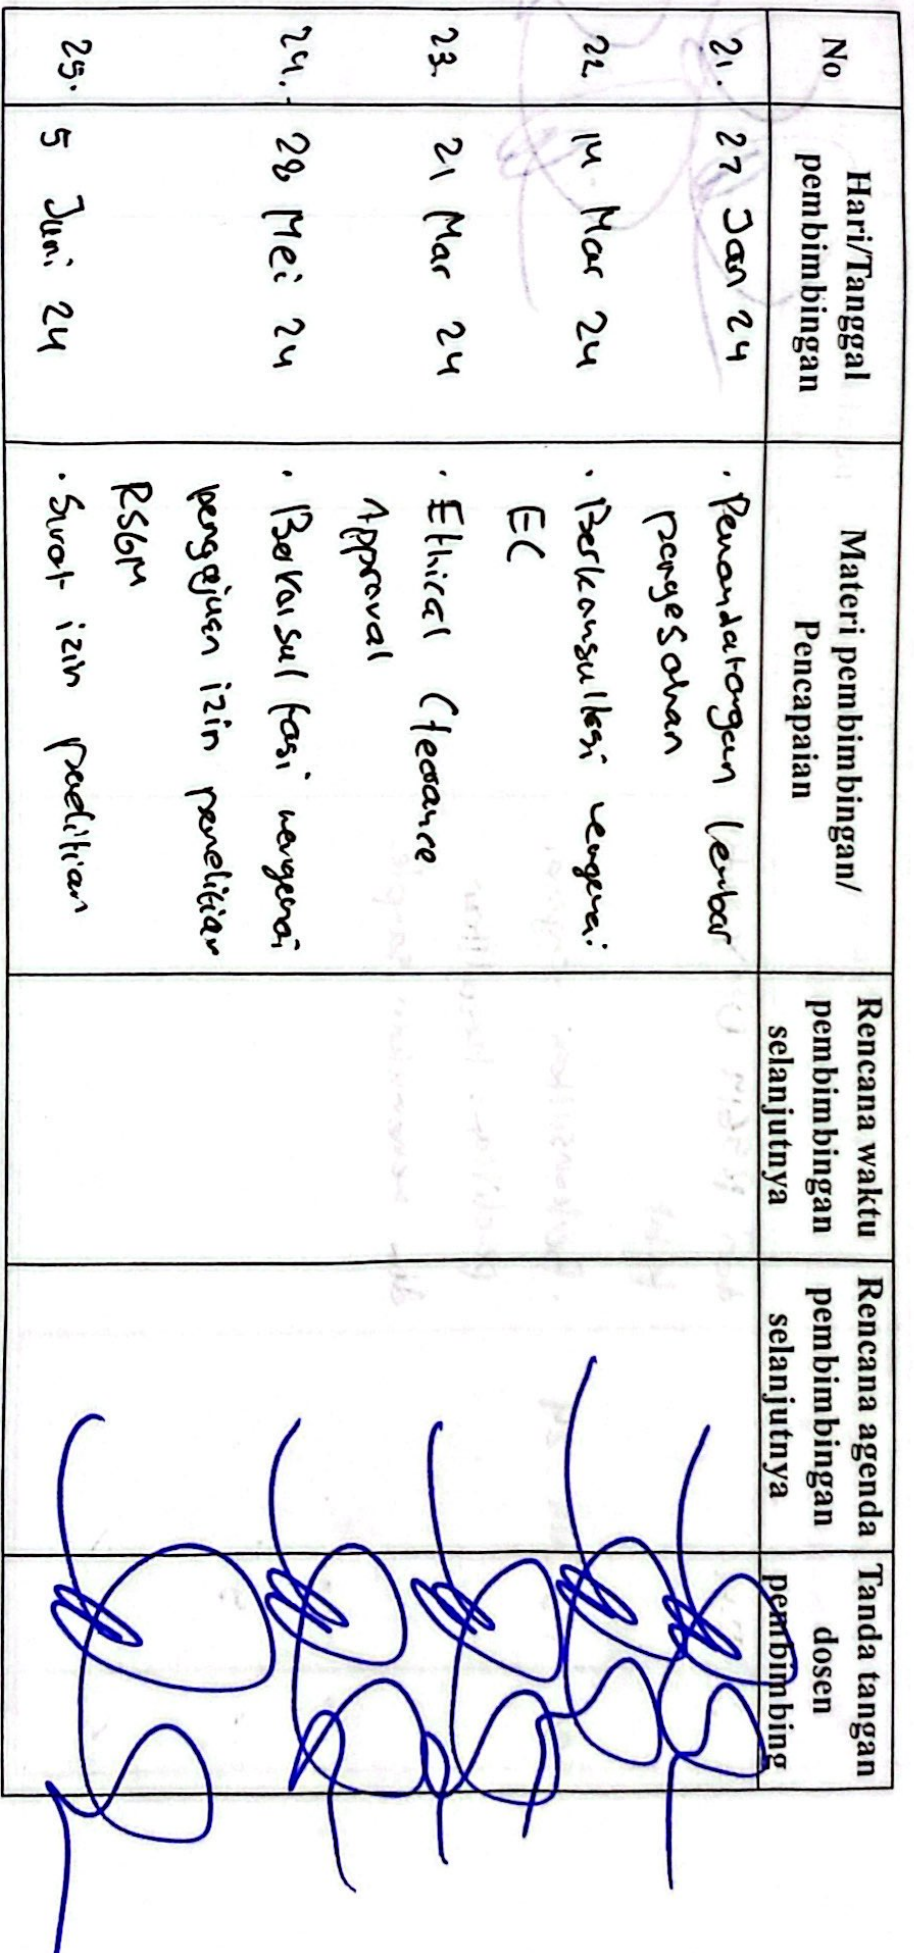 No
Hari/Tanggal
pembimbingan
Materi pembimbingan/
Pencapaian
Rencana waktu
pembimbingan
selanjutnya
Rencana agenda
pembimbingan
selanjutnya
Tanda tangan
dosen
pembimbing
21. 27 Jan 24 · Penandatangan lembar
pengesahan
22. 14 Mar 24 · Berkonsultasi mengenai
EC
23. 21 Mar 24 · Ethical Clearance
Approval
24. 28 Mei 24 · Berkonsultasi mengenai
pengajuan izin penelitian
RSGM
25. 5 Juni 24 · Surat izin penelitian